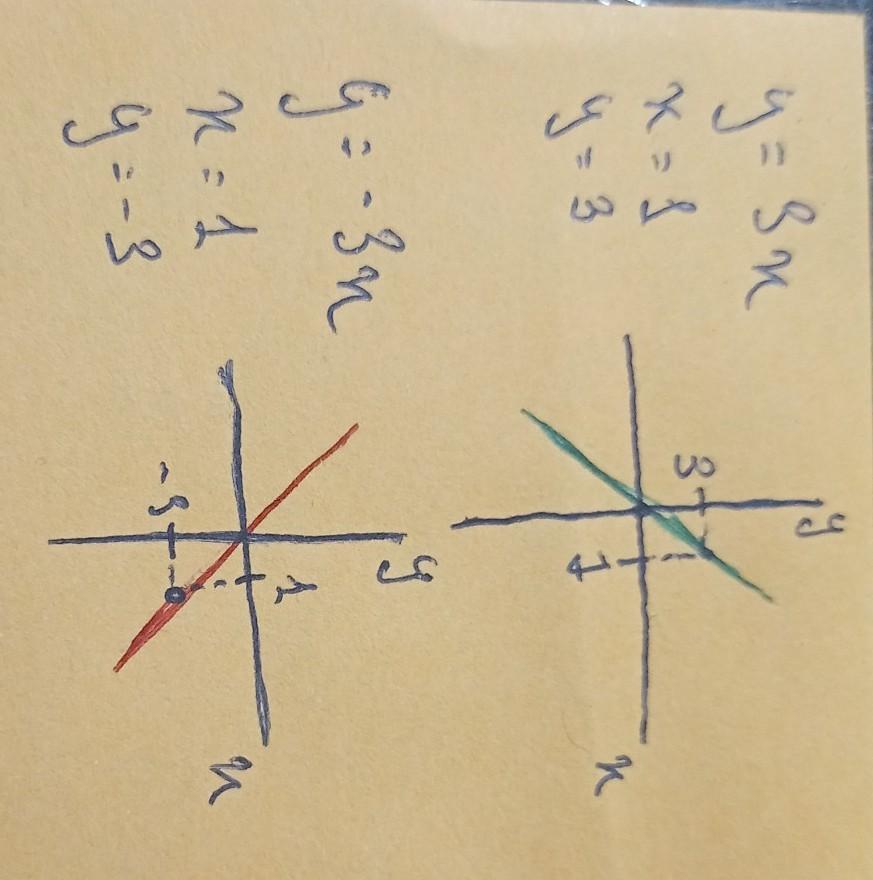 y = 3x
x = 1
y = 3
y
3
1
x
y = -3x
x = 1
y = -3
y
1
-3
x